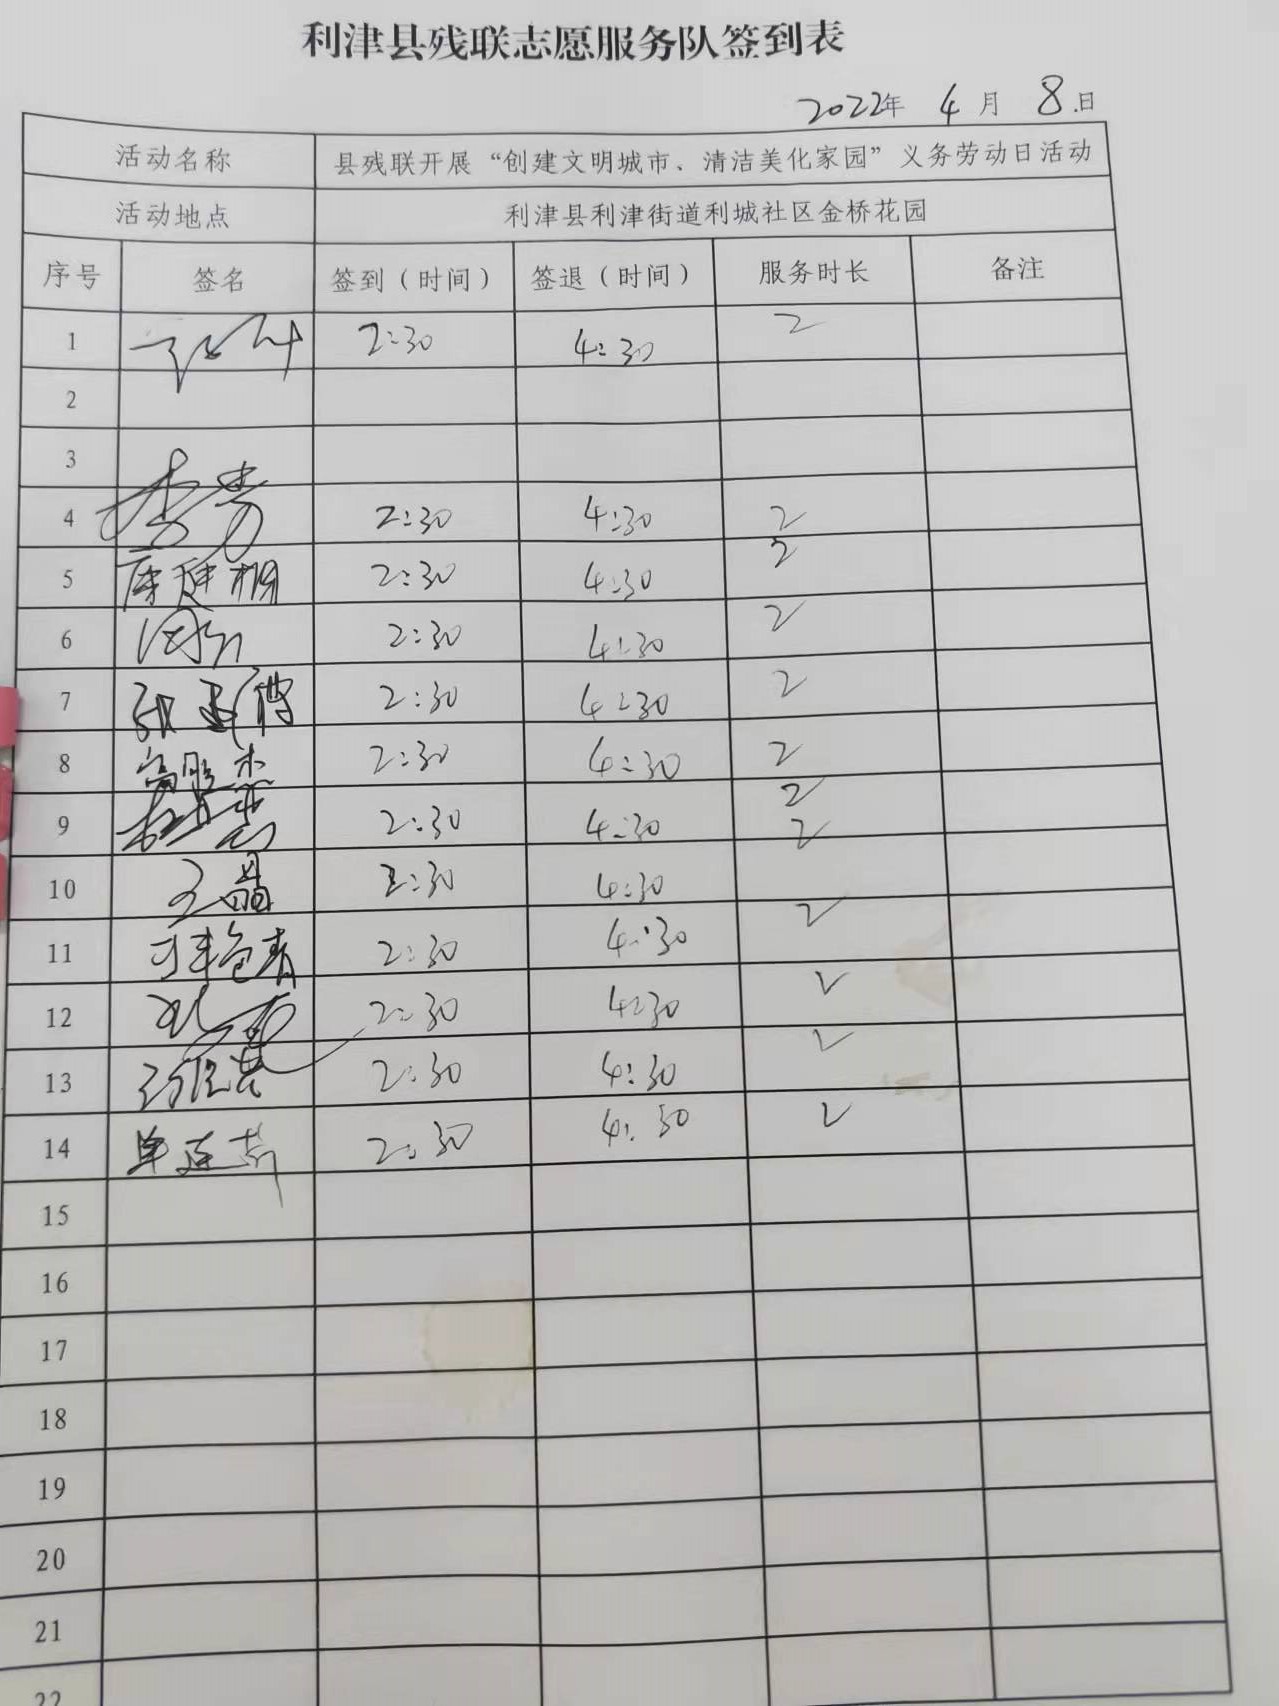 利津县残联志愿服务队签到表
2022年 4月 8日
活动名称 县残联开展“创建文明城市、清洁美化家园”义务劳动日活动
活动地点 利津县利津街道利城社区金桥花园
序号 签名 签到（时间） 签退（时间） 服务时长 备注
1 2:30 4:30 2
2
3
4 李芳 2:30 4:30 2
5 2:30 4:30 2
6 2:30 4:30 2
7 2:30 4:30 2
8 高胜杰 2:30 4:30 2
2
9 2:30 4:30 2
10 王晶 2:30 4:30
11 2:30 4:30 2
12 2:30 4:30 2
13 2:30 4:30 2
14 单连芹 2:30 4:30 2
15
16
17
18
19
20
21
22